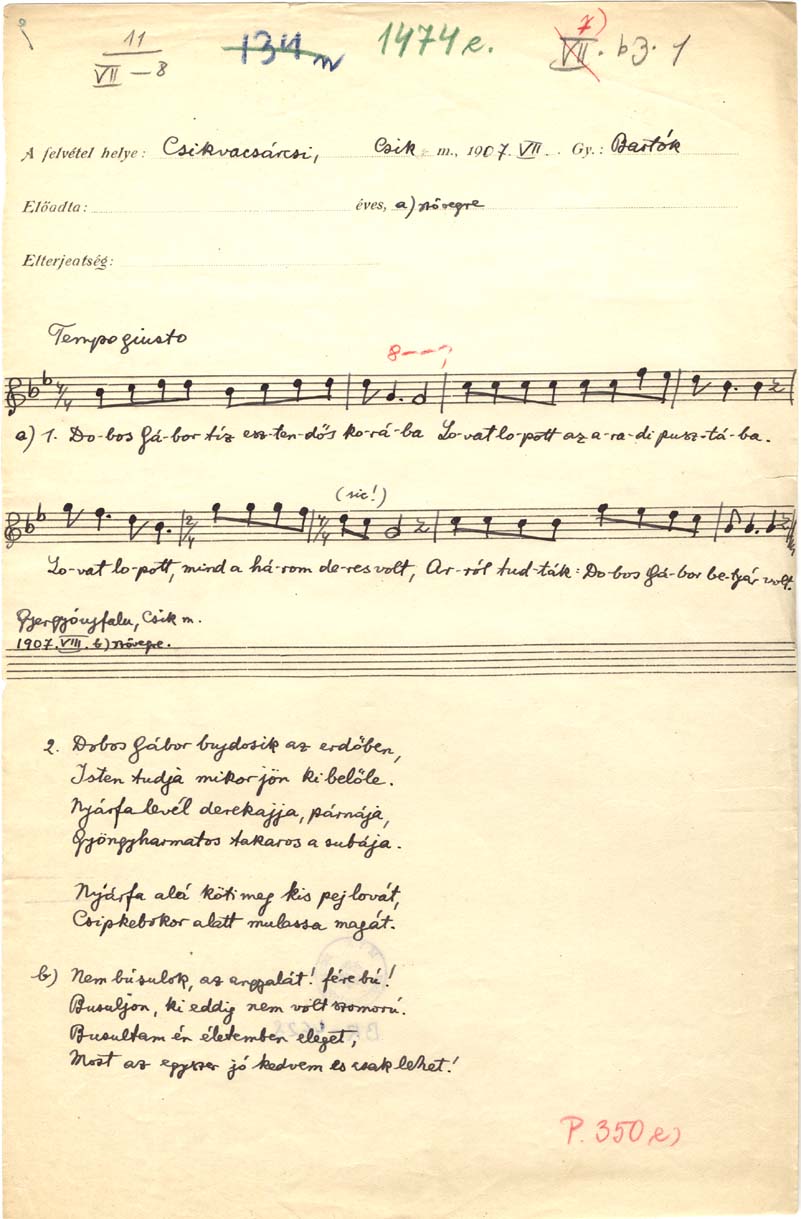 11
VII — 8
134
1474 e.
7)
VII. b3. 1
A felvétel helye: Csikvacsárcsi, Csik m., 1907. VII. Gy.: Bartók
Előadta: éves, a) szövegre
Elterjedtség:
Tempo giusto
8
a) 1. Do-bos Gá-bor tíz esz-ten-dős ko-rá-ba Lo-vat lo-pott az a-ra-di pusz-tá-ba.
(sic!)
Lo-vat lo-pott, mind a há-rom de-res volt, Ar-ról tud-ták: Do-bos Gá-bor be-tyár volt.
Gyergyóujfalu, Csik m.
1907. VIII. b) szövegre.
2. Dobos Gábor bujdosik az erdőben,
Isten tudja mikor jön ki belőle.
Nyárfa levél derekajja, párnája,
Gyöngyharmatos takaros a subája.
Nyárfa alá köti meg kis pej lovát,
Csipkebokor alatt mulassa magát.
b) Nem búsulok, az angyalát! fére bú!
Busuljon, ki eddig nem volt szomorú.
Busultam én életemben eleget,
Most az egyszer jó kedvem es csak lehet!
P. 350 e)